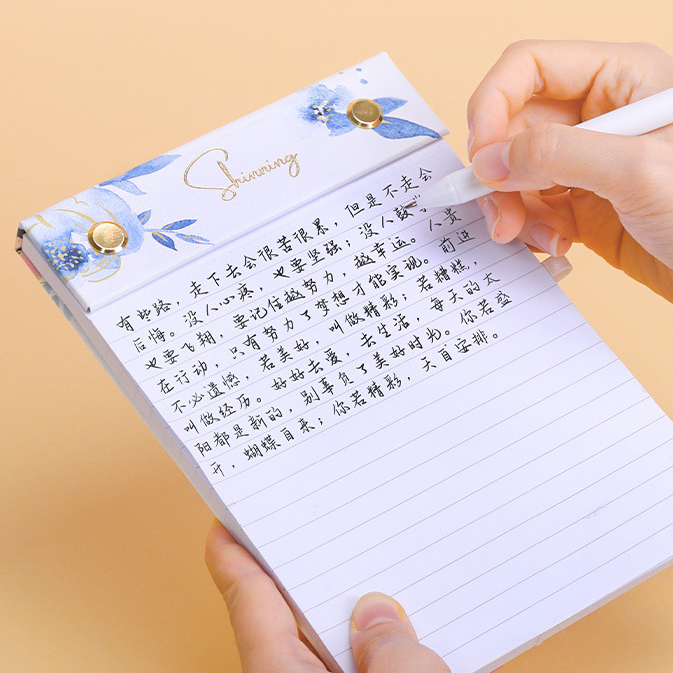 Shinning
有些路，走下去会很苦很累，但是不走会
后悔。没人心疼，也要坚强；没人鼓
也要飞翔，要记住越努力，越幸运。人贵
在行动，只有努力了梦想才能实现。前进
不必遗憾，若美好，叫做精彩；若糟糕，
叫做经历。好好去爱，去生活，每天的太
阳都是新的，别辜负了美好时光。你若盛
开，蝴蝶自来；你若精彩，天自安排。